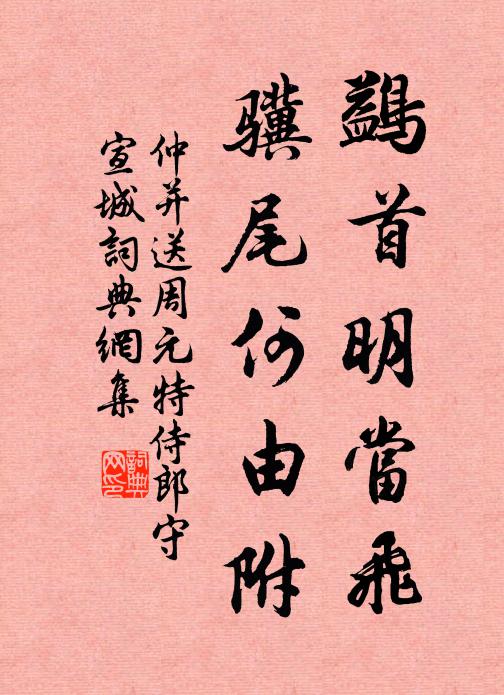 鷁首明當飛
驥尾何由附
仲并送周元特侍郎守
宣城詞典網集
詞典網印